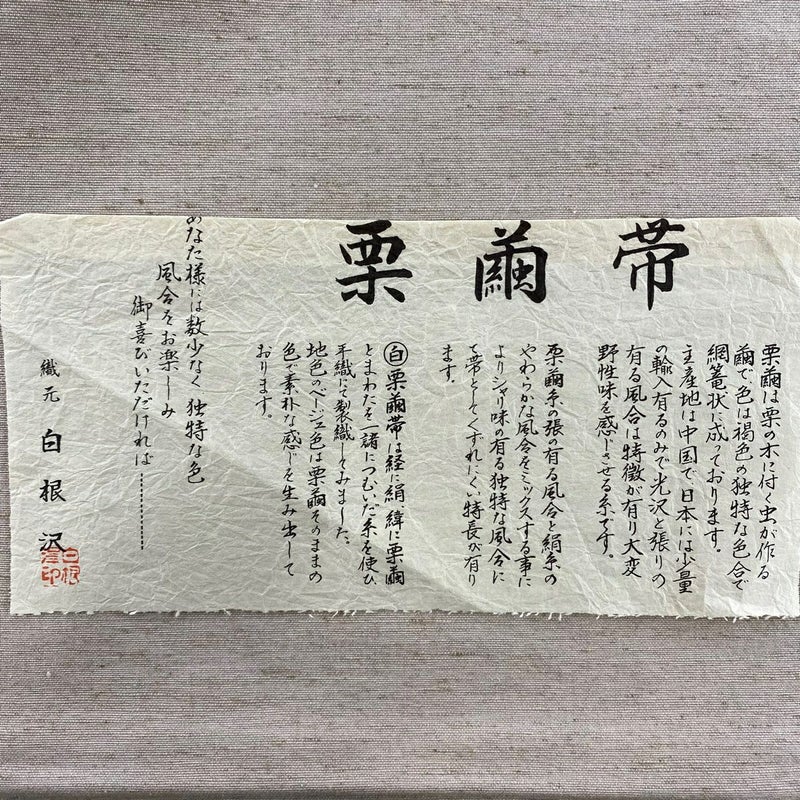 栗繭帯
栗繭は栗の木に付く虫が作る
繭で、色は褐色の独特な色合で
網篭状に成っております。
主産地は中国で、日本には少量
の輸入有るのみで光沢と張りの
有る風合は特徴が有り大変
野性味を感じさせる糸です。
栗繭糸の張の有る風合と絹糸の
やわらかな風合をミックスする事に
よりシャリ味の有る独特な風合に
て帯としてくずれにくい特長が有り
ます。
白栗繭帯は経に絹 緯に栗繭
とまわたを一諸につむいだ糸を使ひ
平織にて製織してみました。
地色のベージュ色は栗繭そのままの
色で素朴な感じを生み出して
おります。
あなた様には数少なく独特な色
風合をお楽しみ
御喜びいただければ…………
織元 白根沢